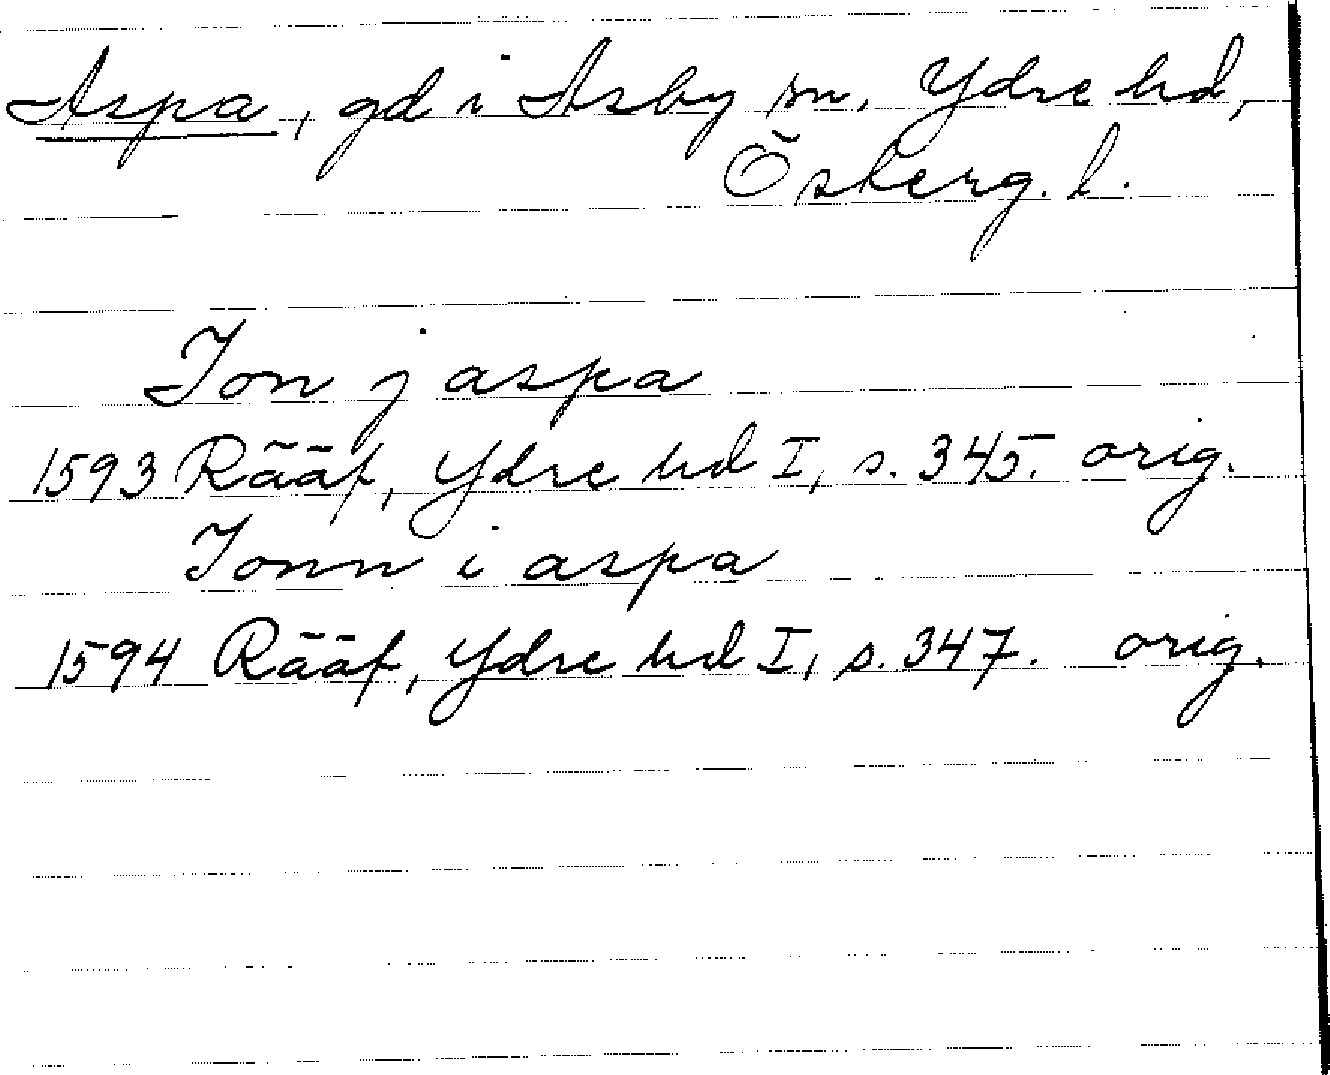 Aspa, gd i Asby sn, Ydre hd,
Östergl.
Jon j aspa
1593 Rääf, Ydre hd I, s. 345. orig.
Jonn i aspa
1594 Rääf, Ydre hd I, s. 347. orig.